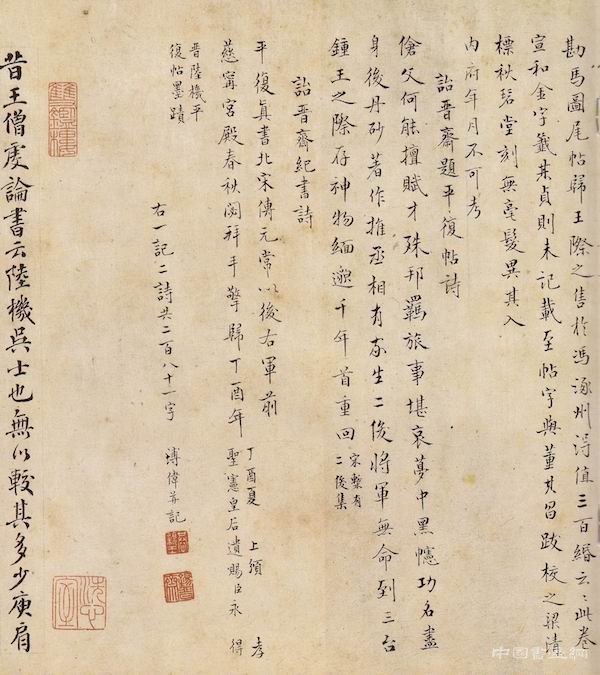 勘馬圖尾帖歸王際之售於馮涿州得值三百緡云云此卷
宣和金字籤貞則未記載至帖字與董其昌跋校之梁清
標秋碧堂刻無毫髮異其入
內府年月不可考
詒晉齋題平復帖詩
傖父何能擅賦才殊邦羈旅事堪哀夢中黑幰功名盡
身後丹砂著作推丞相有家生二俊將軍無命到三台
鍾王之際存神物緬邈千年首重回
宋槧有
二俊集
詒晉齋紀書詩
平復真書北宋傳元常以後右軍前
慈寧宮殿春秋閟拜手擎歸丁酉年
丁酉夏 上頒 孝
聖憲皇后遺賜臣永 得
晉陸機平
復帖墨蹟
右一記二詩共二百八十一字 溥偉并記
昔王僧虔論書云陸機吳士也無以較其多少庾肩